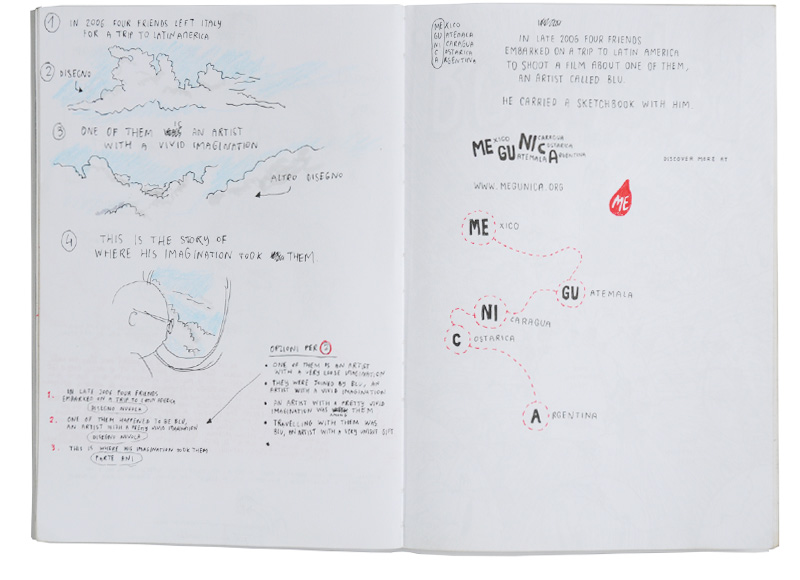 1 IN 2006 FOUR FRIENDS LEFT ITALY
FOR A TRIP TO LATIN AMERICA
2 DISEGNO
3 ONE OF THEM IS AN ARTIST
WITH A VIVID IMAGINATION
ALTRO DISEGNO
4 THIS IS THE STORY OF
WHERE HIS IMAGINATION TOOK THEM.
1. IN LATE 2006 FOUR FRIENDS
EMBARKED ON A TRIP TO LATIN AMERICA
DISEGNO NUVOLA
2. ONE OF THEM HAPPENED TO BE BLU,
AN ARTIST WITH A PRETTY VIVID IMAGINATION
DISEGNO NUVOLA
3. THIS IS WHERE HIS IMAGINATION TOOK THEM
PARTE ANI
OPZIONI PER 2
• ONE OF THEM IS AN ARTIST
WITH A VERY LOOSE IMAGINATION
• THEY WERE JOINED BY BLU, AN
ARTIST WITH A VIVID IMAGINATION
• AN ARTIST WITH A PRETTY VIVID
IMAGINATION WAS AMONG THEM
• TRAVELLING WITH THEM WAS
BLU, AN ARTIST WITH A VERY UNIQUE GIFT
•
MEXICO
GUATEMALA
NICARAGUA
COSTARICA
ARGENTINA
IN LATE 2006 FOUR FRIENDS
EMBARKED ON A TRIP TO LATIN AMERICA
TO SHOOT A FILM ABOUT ONE OF THEM,
AN ARTIST CALLED BLU.
HE CARRIED A SKETCHBOOK WITH HIM
MEXICO
GUATEMALA
NICARAGUA
COSTARICA
ARGENTINA
DISCOVER MORE AT
WWW.MEGUNICA.ORG
ME
MEXICO
GUATEMALA
NICARAGUA
COSTARICA
ARGENTINA